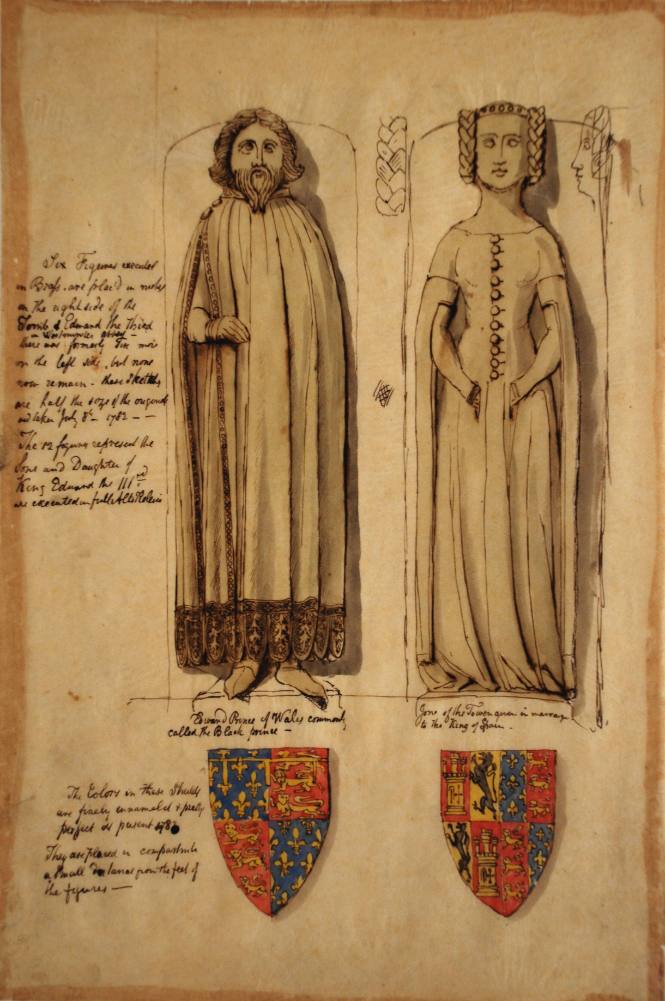 Six Figures executed
in Brass are placed in niches
on the right side of the
Tomb of Edward the Third
in Westminster abbey —
there was formerly Six more
on the left side, but none
now remain — these Sketches
are half the size of the originals
and taken July 8th — 1782 — —
The 12 figures represent the
Sons and Daughter of
King Edward the IIIrd
are executed in full Alto Relievo
Edward Prince of Wales commonly
called the Black prince —
Jone of the Tower given in marriage
to the King of Spain.
The Colors in these Shields
are finely ennameled & pretty
perfect at present 1782
They are placed in compartments
a Small Distance from the feet of
the figures —